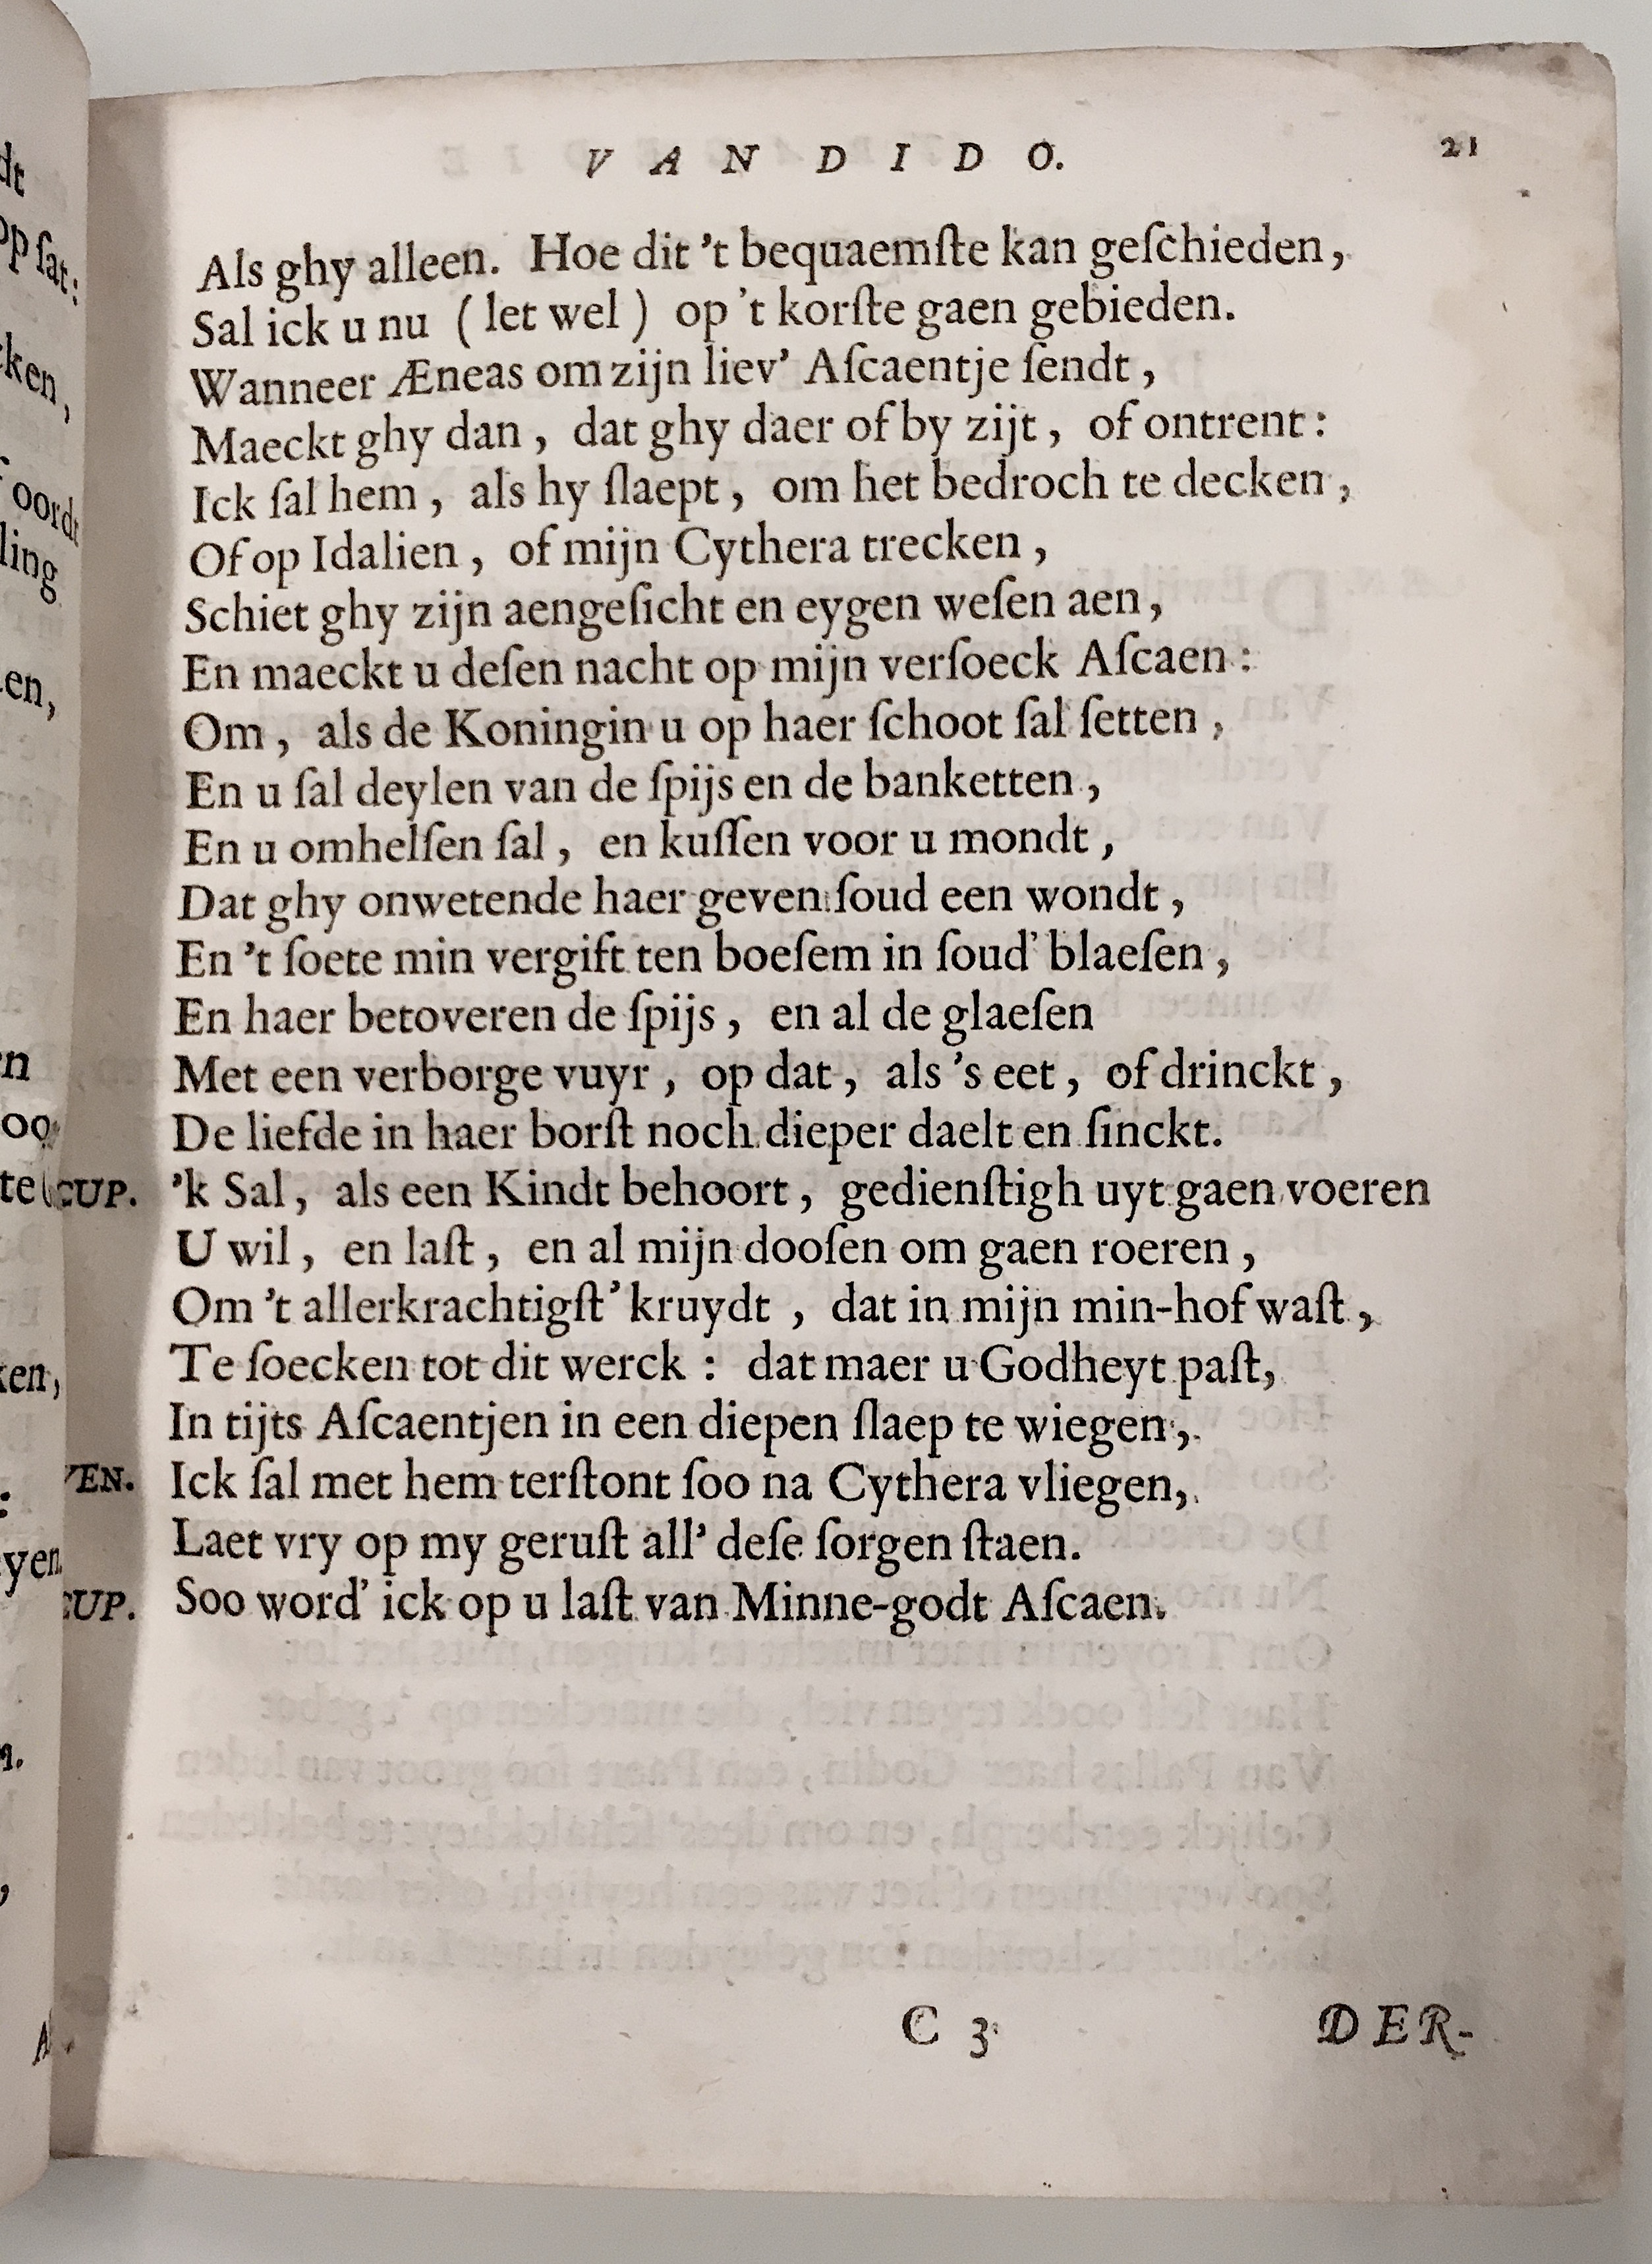 VAN DIDO. 21
Als ghy alleen. Hoe dit 't bequaemſte kan geſchieden,
Sal ick u nu (let wel) op 't korſte gaen gebieden.
Wanneer Æneas om zijn liev' Aſcaentje ſendt,
Maeckt ghy dan, dat ghy daer of by zijt, of ontrent:
Ick ſal hem, als hy ſlaept, om het bedroch te decken,
Of op Idalien, of mijn Cythera trecken,
Schiet ghy zijn aengeſicht en eygen weſen aen,
En maeckt u deſen nacht op mijn verſoeck Aſcaen:
Om, als de Koningin u op haer ſchoot ſal ſetten,
En u ſal deylen van de ſpijs en de banketten,
En u omhelſen ſal, en kuſſen voor u mondt,
Dat ghy onwetende haer geven ſoud een wondt,
En 't ſoete min vergift ten boeſem in ſoud' blaeſen,
En haer betoveren de ſpijs, en al de glaeſen
Met een verborge vuyr, op dat, als 's eet, of drinckt,
De liefde in haer borſt noch dieper daelt en ſinckt.
CUP. 'k Sal, als een Kindt behoort, gedienſtigh uyt gaen voeren
U wil, en laſt, en al mijn dooſen om gaen roeren,
Om 't allerkrachtigſt' kruydt, dat in mijn min-hof waſt,
Te ſoecken tot dit werck: dat maer u Godheyt paſt,
In tijts Aſcaentjen in een diepen ſlaep te wiegen,
VEN. Ick ſal met hem terſtont ſoo na Cythera vliegen,
Laet vry op my geruſt all' deſe ſorgen ſtaen.
CUP. Soo word' ick op u laſt van Minne-godt Aſcaen.
C 3 DER-